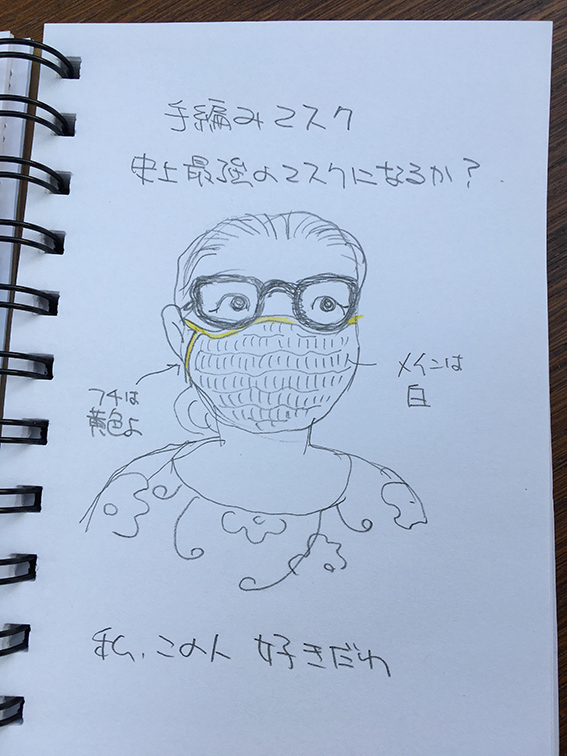 手編みマスク
史上最強のマスクになるか?
メインは
白
フチは
黄色よ
私、この人 好きだわ